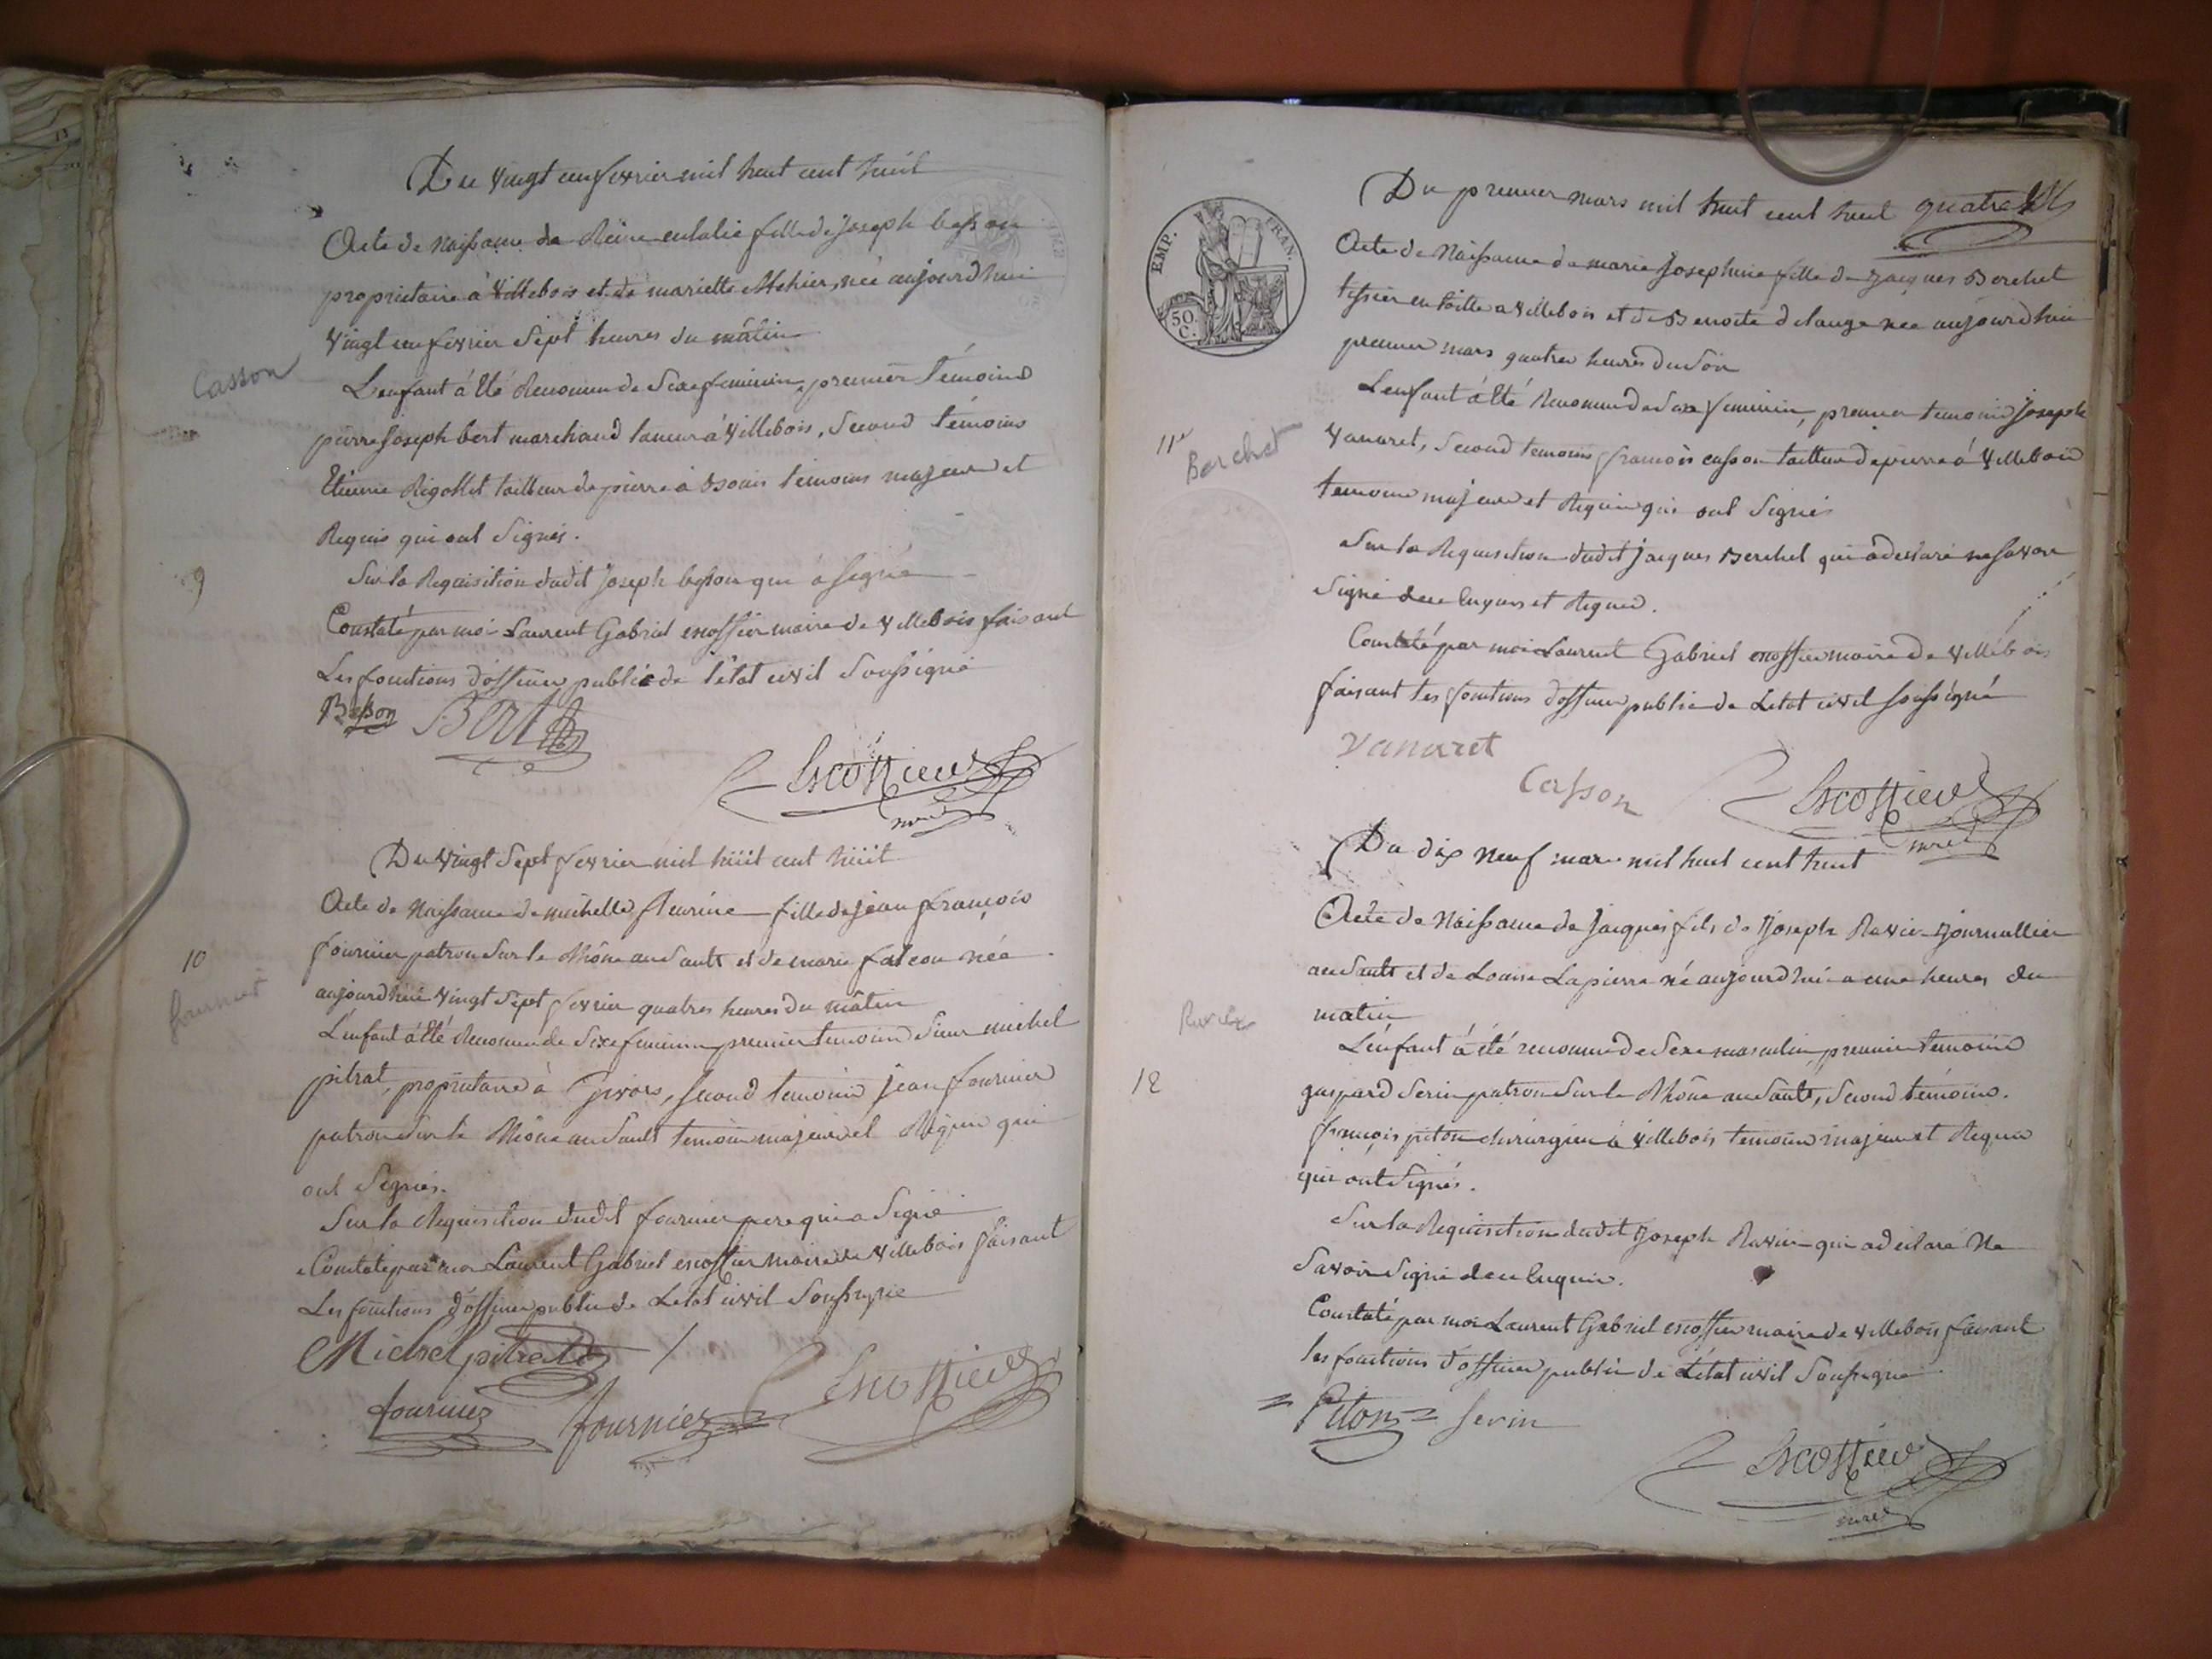 Du Vingt un fevrier mil huit cent huit
Acte de Naissance de Reine eulalie fille de Joseph besson
proprietaire à Villebois et de mariette Mehier, née aujourdhui
Vingt un fevrier Sept heures du mâtin
Casson
L'enfant à Eté Reconnu de Sexe feminin, premier témoins
pierre Joseph bert marchand taneur à Villebois, Second témoins
Etienne Rigollet tailleur de pierre à temoins majeurs et
Requis qui ont Signés.
9
Sur la Requisition dudit Joseph besson qui à Signé
Constaté par moi Laurent Gabriel escoffier maire de Villebois faisant
Les fonctions d'officier public de l'état civil Soussigné
Besson Bert
Escoffier
Du Vingt Sept fevrier mil huit cent huit
Acte de Naissance de michelle fleurine fille de jean françois
10
fournier patron Sur le Rhône au Sault et de marie falcon née
fournier
aujourdhui Vingt Sept fevrier quatres heures du mâtin
L'enfant à Eté Reconnu de Sexe feminin premier temoins Sieur michel
pitrat, proprietaire à Givors, Second temoins jean fournier
patron Sur le Rhône au Sault temoins majeurs et Requis qui
ont Signés.
Sur la Requisition dudit fournier pere qui a Signé
Constaté par moi Laurent Gabriel escoffier maire de Villebois faisant
Les fonctions d'officier public de Letat civil Soussigné
Michel pitrat
fournier fournier Escoffier
EMP. FRAN.
50 C.
Du premier mars mil huit cent huit quatre
Acte de Naissance de marie Josephine fille de Jacques Berchet
tissier en toille a Villebois et de Benoite delange née aujourdhui
premier mars quatres heures du Soir
L'enfant à Eté Reconnu de Sexe feminin, premier temoins Joseph
11e
Berchet
Vanaret, Second temoins françois casson tailleur de pierre à Villebois
temoins majeurs et Requis qui ont Signés
Sur la Requisition dudit jacques Berchet qui à declaré ne Savoir
Signé de ce Enquis et Requis.
Constaté par moi Laurent Gabriel escoffier maire de Villebois
faisant les fonctions d'officier public de Letat civil soussigné
Vanaret
Casson Escoffier
Du dix Neuf mars mil huit cent huit
Acte de Naissance de jacques fils de Joseph Ravier Journallier
au Sault et de Louise Lapierre né aujourdhui a une heures du
matin
Ravier
L'enfant à été reconnu de Sexe masculin premier temoins
12
gaspard Serin patron Sur le Rhône au Sault, Second témoins
françois piton chirurgien à Villebois temoins majeurs et Requis
qui ont Signés.
Sur la Requisition dudit Joseph Ravier qui a declaré Ne
Savoir Signé de ce Enquis.
Constaté par moi Laurent Gabriel escoffier maire de Villebois faisant
les fonctions d'officier public de L'état civil Soussigné
Piton Serin
Escoffier